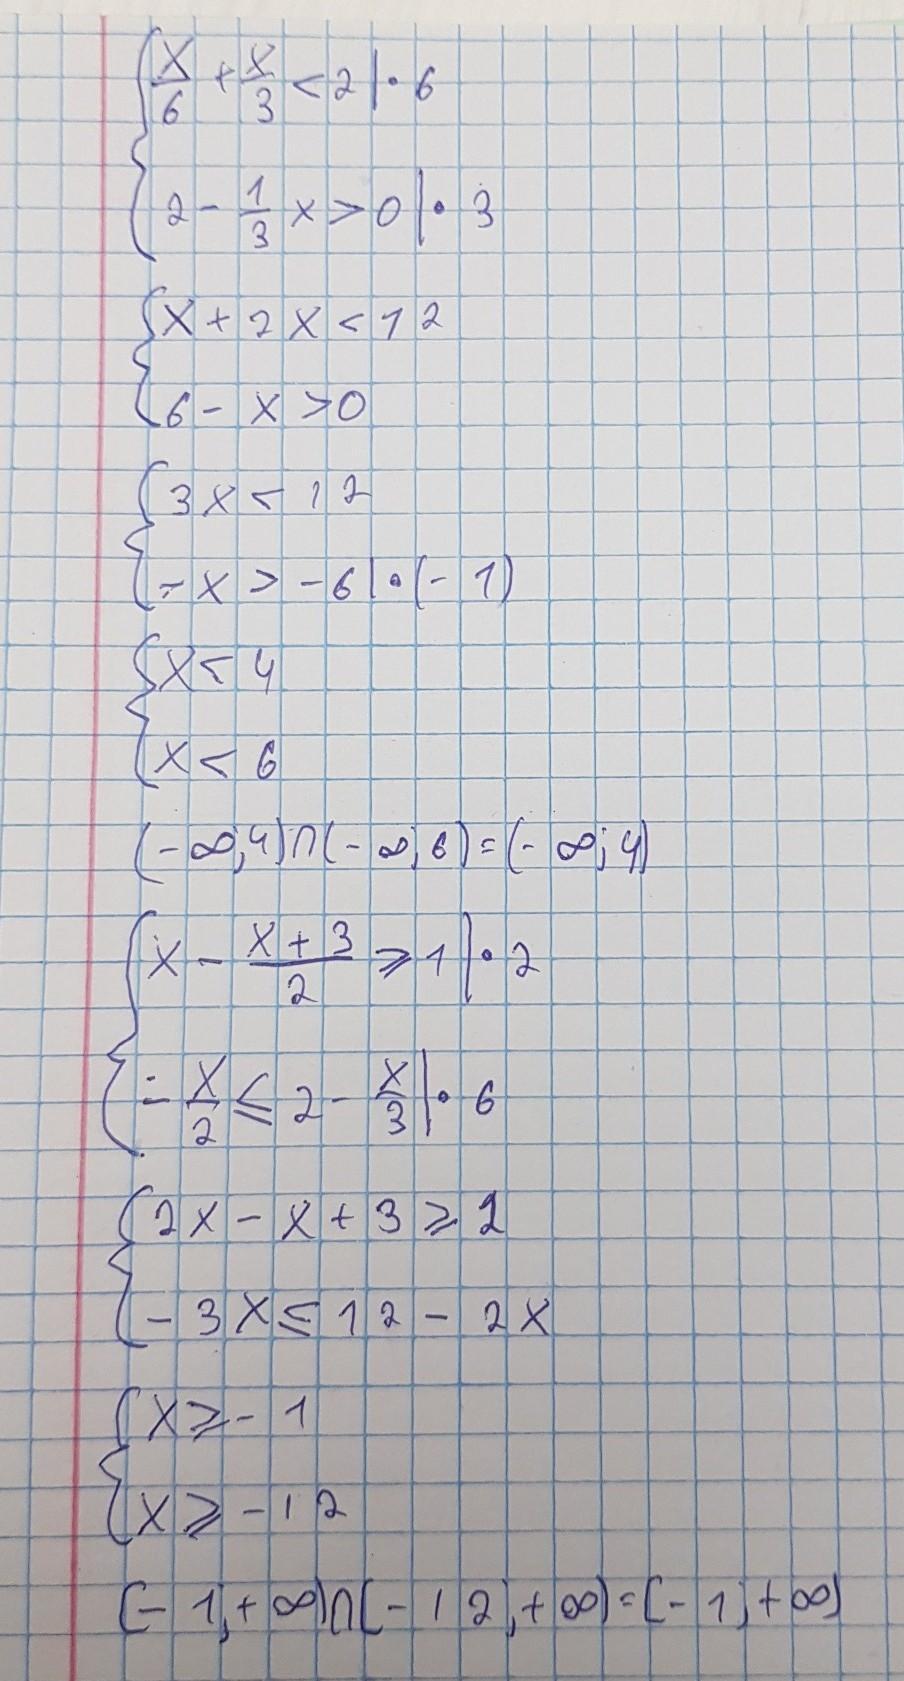 x/6 + x/3 < 2 | · 6
2 - 1/3 x > 0 | · 3
x + 2x < 12
6 - x > 0
3x < 12
-x > -6 | · (-1)
x < 4
x < 6
(-∞;4)∩(-∞;6)=(-∞;4)
x - (x+3)/2 ≥ 1 | · 2
-x/2 ≤ 2 - x/3 | · 6
2x - x + 3 ≥ 2
-3x ≤ 12 - 2x
x ≥ -1
x ≥ -12
[-1;+∞)∩[-12;+∞)=[-1;+∞)